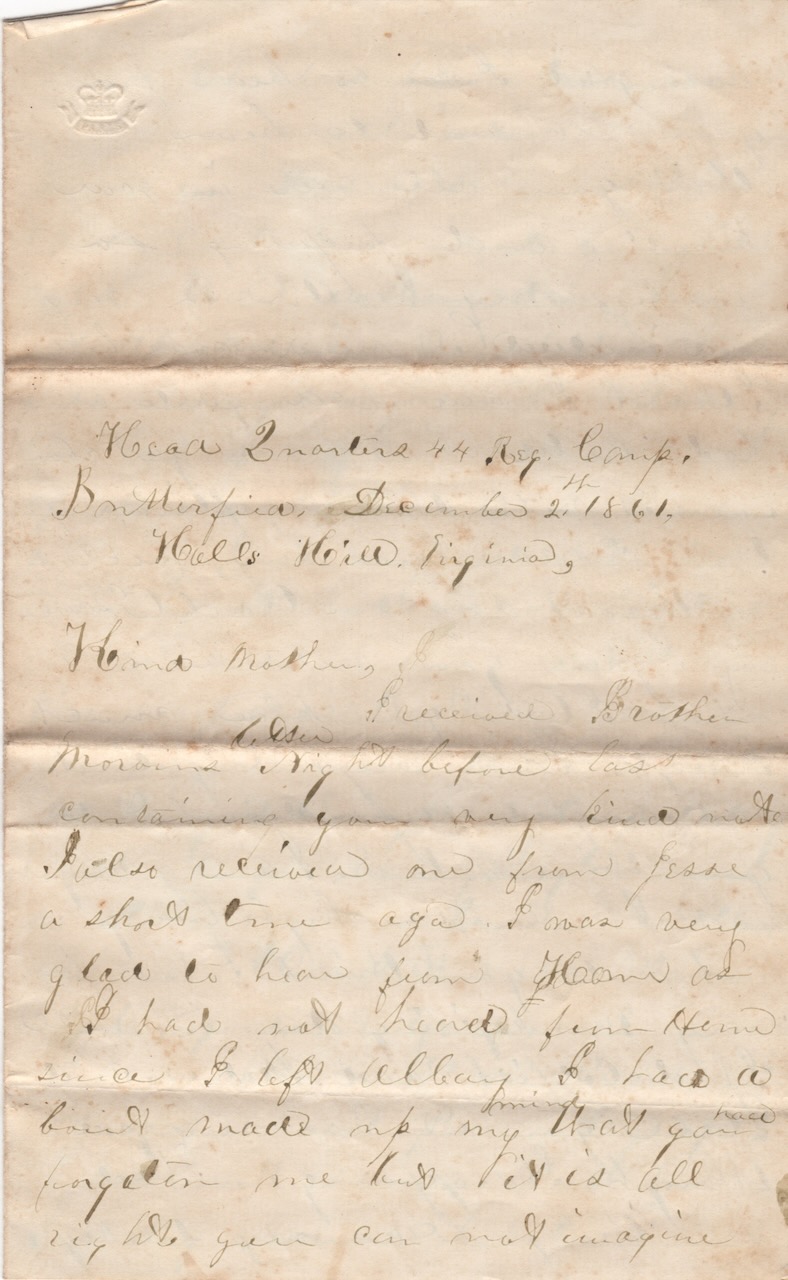 PARIS
Head Quarters 44 Reg. Camp.
Butterfied, December 2th 1861.
Halls Hill. Virginia,
Kind Mother,
I received Brother
letter
Night before last
containing your very kind note
I also received one from Jesse
a short time ago. I was very
glad to hear from Home as
I had not heard from Home
since I left Albany I had a
bout made up my mind that you had
forgoten me but it is all
right you can not imagine